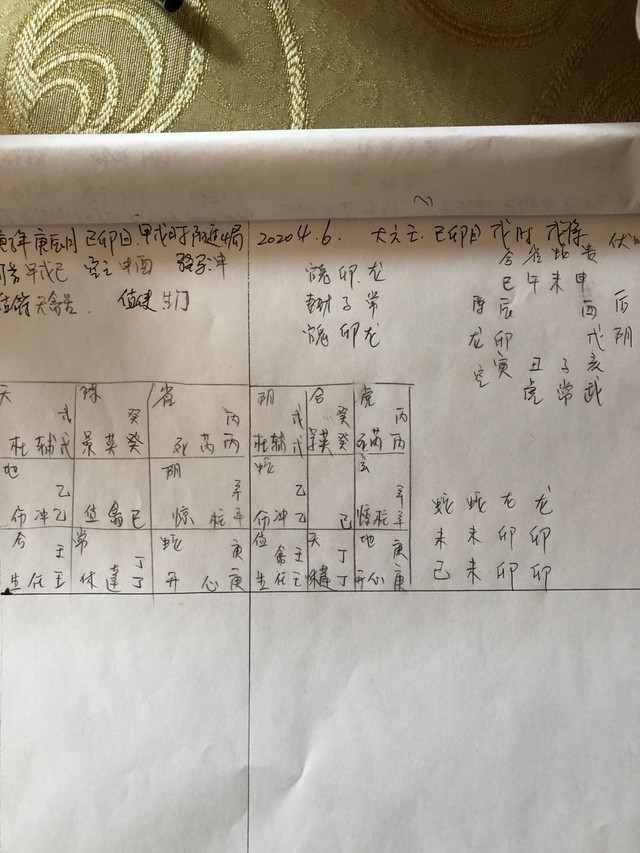 庚子年 庚辰月 己卯日 甲戌时
旬首甲戌己 空亡申酉
值符天禽 值使生门
2020 4.6. 大六壬 己卯日 戌时 戌将 伏
合 雀 蛇 贵
巳 午 未 申
鬼 卯 龙
财 子 常
鬼 卯 龙
辰 酉 后
龙 卯 戌 阴
空 寅 丑 子 亥
虎 常 武
蛇 蛇 龙 龙
未 未 卯 卯
己 未 卯 卯
天 戊
杜 辅 戊
癸
景 英 癸
雀 丙
死 芮 丙
地 乙
冲 乙
禽 己
阴 辛
惊 柱 辛
合 壬
生 任 壬
常 丁
休 蓬 丁
蛇 庚
开 心 庚
阴 戊
杜 辅 戊
合 癸
英 癸
虎 丙
芮 丙
蛇 乙
冲 乙
己
玄 辛
惊 柱 辛
禽 壬
生 任 壬
天 丁
休 蓬 丁
地 庚
开 心 庚